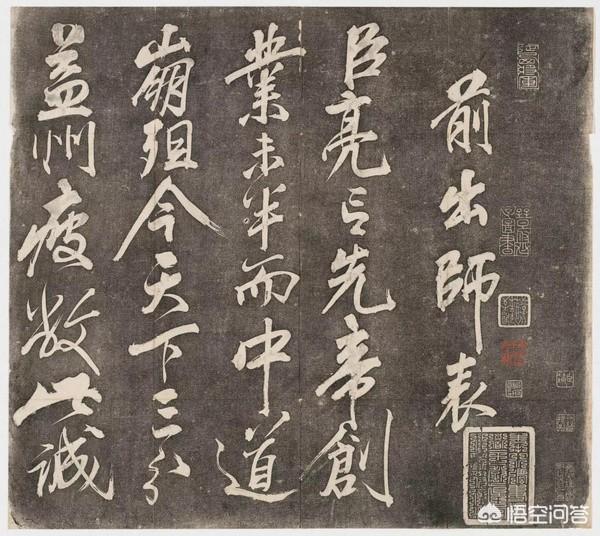 前出師表
臣亮言先帝創
業未半而中道
崩殂今天下三分
益州疲敝此誠
悟空问答